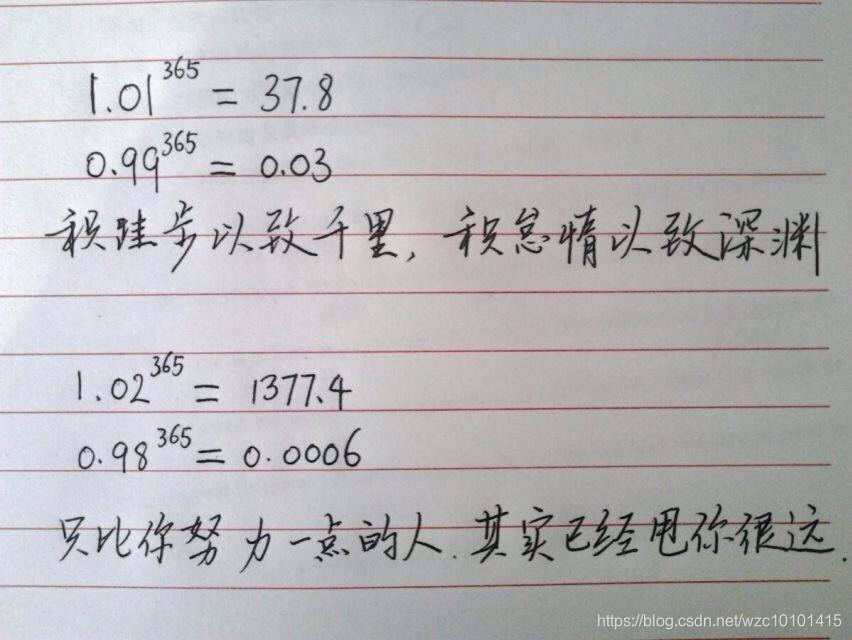 1.01^365 = 37.8
0.99^365 = 0.03
积跬步以致千里，积怠情以致深渊
1.02^365 = 1377.4
0.98^365 = 0.0006
只比你努力一点的人.其实已经甩你很远.
https://blog.csdn.net/wzc10101415